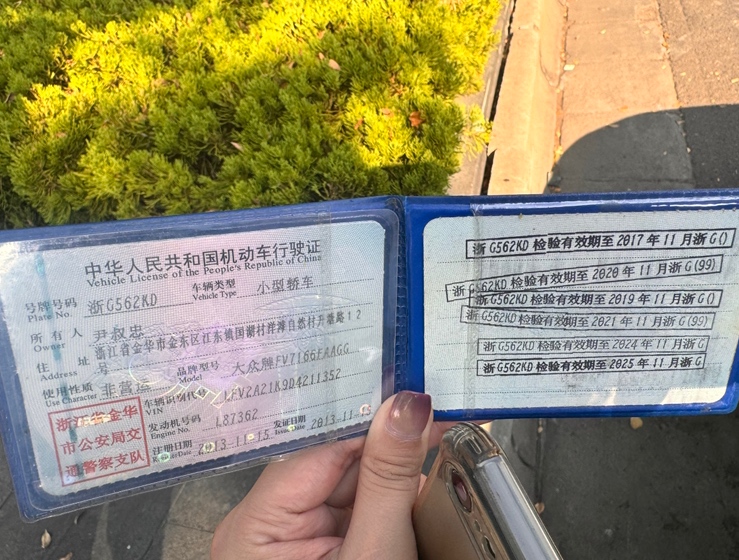 中华人民共和国机动车行驶证
Vehicle License of the People's Republic of China
号牌号码 浙G562KD 车辆类型 小型轿车
Plate No. Vehicle Type
所有人 尹叔忠
Owner
住址 浙江省金华市金东区江东镇国湖村洋滩自然村升塘路12号
Address
使用性质 非营运 品牌型号 大众牌FV7166FAAGG
Use Character Model
车辆识别代 LFV2A21K9D4211352
VIN
发动机号码 L87362
Engine No.
注册日期 2013-11-15 发证日期 2013-11-
Register Date Issue Date
浙江省金华
市公安局交
通警察支队
浙 G562KD 检验有效期至 2017 年 11 月浙 G()
浙 G562KD 检验有效期至 2020 年 11 月浙 G(99)
浙 G562KD 检验有效期至 2019 年 11 月浙 G()
浙 G562KD 检验有效期至 2021 年 11 月浙 G(99)
浙 G562KD 检验有效期至 2024 年 11 月浙 G
浙 G562KD 检验有效期至 2025 年 11 月浙 G